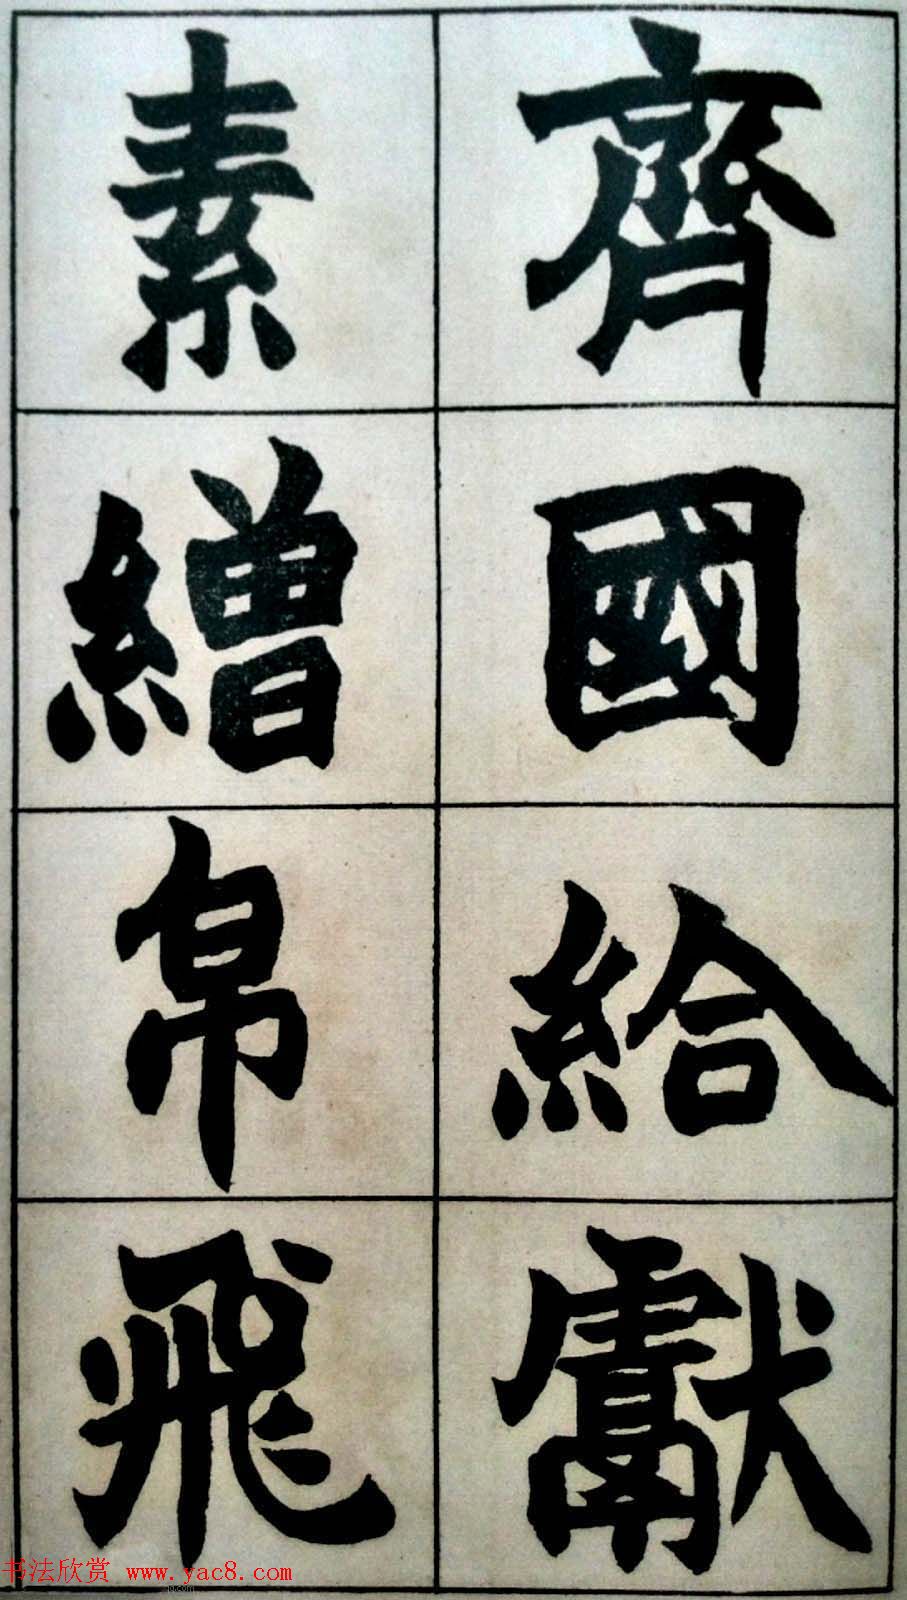 齊國給獻
素繒帛飛
书法欣赏 www.yac8.com